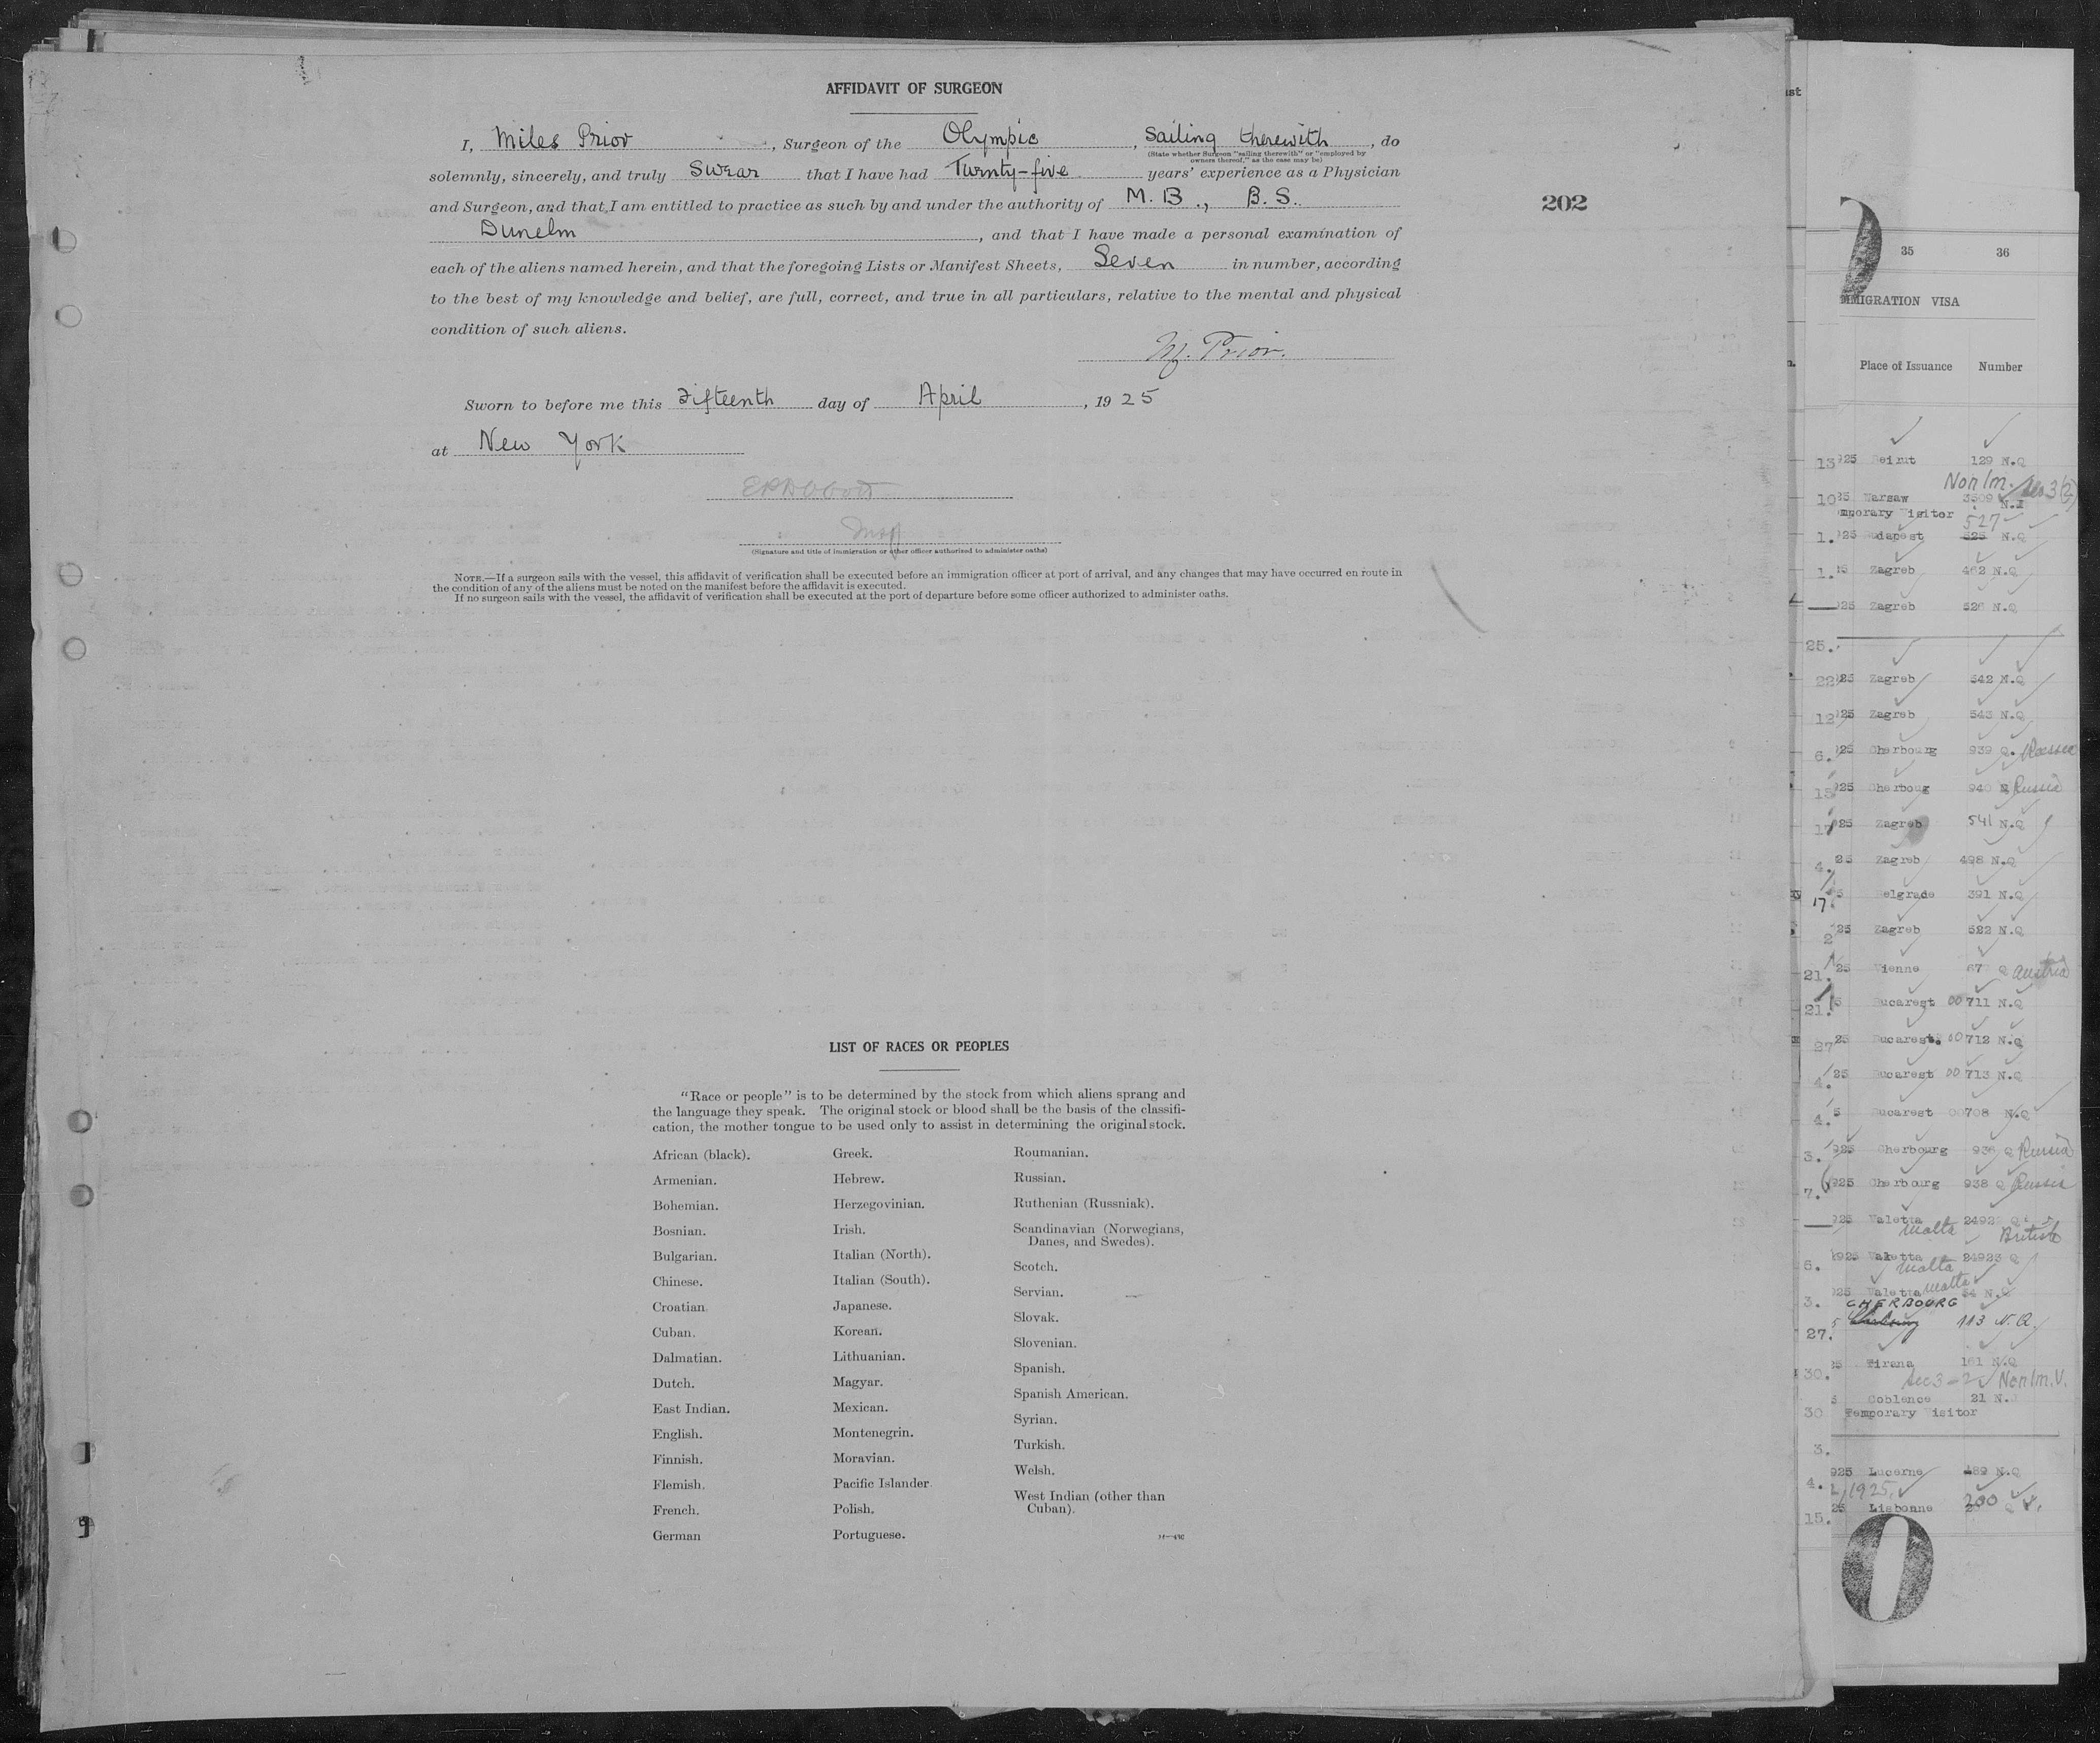 AFFIDAVIT OF SURGEON
I, Miles Prior, Surgeon of the Olympic, Sailing therewith, do
(State whether Surgeon "sailing therewith" or "employed by
owners thereof," as the case may be)
solemnly, sincerely, and truly Swear that I have had Twenty-five years' experience as a Physician
and Surgeon, and that I am entitled to practice as such by and under the authority of M.B., B.S.
Dunelm, and that I have made a personal examination of
each of the aliens named herein, and that the foregoing Lists or Manifest Sheets, Seven in number, according
to the best of my knowledge and belief, are full, correct, and true in all particulars, relative to the mental and physical
condition of such aliens.
M. Prior.
Sworn to before me this Fifteenth day of April, 1925
at New York
Insp
(Signature and title of immigration or other officer authorized to administer oaths)
NOTE.—If a surgeon sails with the vessel, this affidavit of verification shall be executed before an immigration officer at port of arrival, and any changes that may have occurred en route in
the condition of any of the aliens must be noted on the manifest before the affidavit is executed.
If no surgeon sails with the vessel, the affidavit of verification shall be executed at the port of departure before some officer authorized to administer oaths.
202
LIST OF RACES OR PEOPLES
"Race or people" is to be determined by the stock from which aliens sprang and
the language they speak. The original stock or blood shall be the basis of the classifi-
cation, the mother tongue to be used only to assist in determining the original stock.
African (black).
Armenian.
Bohemian.
Bosnian.
Bulgarian.
Chinese.
Croatian.
Cuban.
Dalmatian.
Dutch.
East Indian.
English.
Finnish.
Flemish.
French.
German
Greek.
Hebrew.
Herzegovinian.
Irish.
Italian (North).
Italian (South).
Japanese.
Korean.
Lithuanian.
Magyar.
Mexican.
Montenegrin.
Moravian.
Pacific Islander.
Polish.
Portuguese.
Roumanian.
Russian.
Ruthenian (Russniak).
Scandinavian (Norwegians,
Danes, and Swedes).
Scotch.
Servian.
Slovak.
Slovenian.
Spanish.
Spanish American.
Syrian.
Turkish.
Welsh.
West Indian (other than
Cuban).
35 36
IMMIGRATION VISA
Place of Issuance Number
25 Beirut 129 N.Q
Non Im. Sec 3(2)
25 Warsaw 3509 N.I
mporary Visitor
527
925 Budapest 525 N.Q
Zagreb 462 N.Q
925 Zagreb 526 N.Q
25 Zagreb 542 N.Q
25 Zagreb 543 N.Q
925 Cherbourg 939 Q. Russia
925 Cherboug 940 Russia
25 Zagreb 541 N.Q
25 Zagreb 498 N.Q
Belgrade 391 N.Q
25 Zagreb 522 N.Q
25 Vienne 67 Q Austria
Bucarest 00711 N.Q
25 Bucarest. 00712 N.Q
25 Bucarest 00713 N.Q
Bucarest 00708 N.Q
925 Cherbourg 936 Q Russia
925 Cherbourg 938 Q Russia
25 Valetta 2492 Q
Malta British
1925 Valetta 24923 Q
Malta
925 Valetta Malta 54 N.Q
CHERBOURG
113 N.Q.
25 Tirana 161 N.Q
Sec 3-2 Non Im. V.
Coblence 21 N.
Temporary Visitor
925 Lucerne 489 N.Q
1925
25 Lisbonne 200 Q